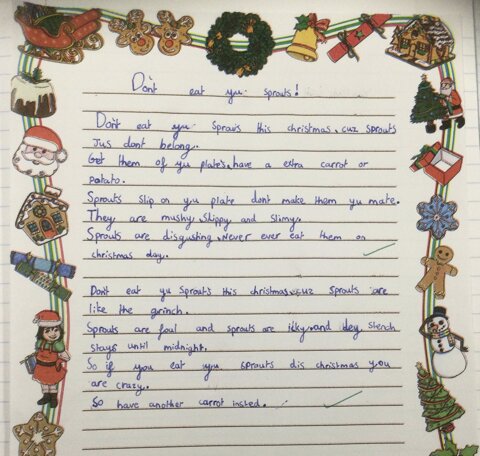 Don't eat yu sprouts!
Don't eat yu Sprouts this christmas, cuz sprouts
Jus dont belong.
Get them of yu plates, have a extra carrot or
potato.
Sprouts slip on yu plate dont make them yu mate.
They are mushy, Slippy and Slimy.
Sprouts are disgusting, Never ever eat them on
christmas day.
Dont eat yu Sprouts this christmas, cuz Sprouts are
like the grinch.
Sprouts are foul and sprouts are icky, and dey stench
stays until midnight.
So if you eat you sprouts dis christmas you
are crazy.
So have another carrot insted.